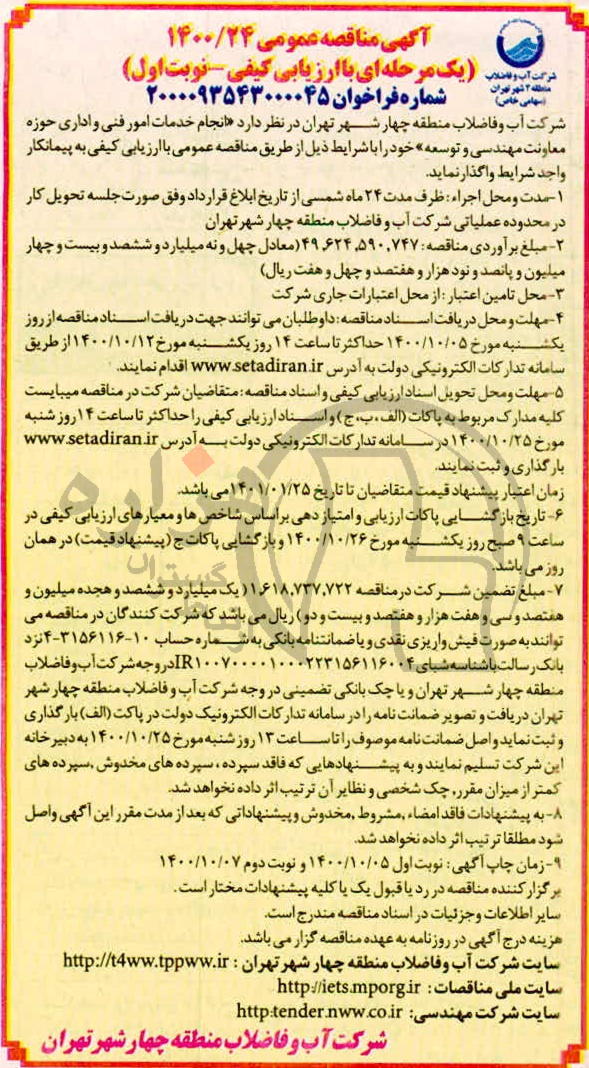 آگهی مناقصه عمومی ۱۴۰۰/۲۴
(یک مرحله‌ای با ارزیابی کیفی – نوبت اول)
شماره فراخوان ۲۰۰۰۰۹۳۵۴۳۰۰۰۰۴۵
شرکت آب و فاضلاب
منطقه ۴ شهر تهران
(سهامی خاص)
شرکت آب و فاضلاب منطقه چهار شهر تهران در نظر دارد «انجام خدمات امور فنی و اداری حوزه
معاونت مهندسی و توسعه» خود را با شرایط ذیل از طریق مناقصه عمومی با ارزیابی کیفی به پیمانکار
واجد شرایط واگذار نماید.
۱-مدت و محل اجراء: ظرف مدت ۲۴ ماه شمسی از تاریخ ابلاغ قرارداد وفق صورت جلسه تحویل کار
در محدوده عملیاتی شرکت آب و فاضلاب منطقه چهار شهر تهران
۲-مبلغ برآوردی مناقصه: ۴۹,۶۲۴,۵۹۰,۷۴۷ (معادل چهل و نه میلیارد و ششصد و بیست و چهار
میلیون و پانصد و نود هزار و هفتصد و چهل و هفت ریال)
۳-محل تامین اعتبار: از محل اعتبارات جاری شرکت
۴-مهلت و محل دریافت اسناد مناقصه: داوطلبان می توانند جهت دریافت اسناد مناقصه از روز
یکشنبه مورخ ۱۴۰۰/۱۰/۰۵ حداکثر تا ساعت ۱۴ روز یکشنبه مورخ ۱۴۰۰/۱۰/۱۲ از طریق
سامانه تدارکات الکترونیکی دولت به آدرس www.setadiran.ir اقدام نمایند.
۵-مهلت و محل تحویل اسناد ارزیابی کیفی و اسناد مناقصه: متقاضیان شرکت در مناقصه میبایست
کلیه مدارک مربوط به پاکات (الف، ب، ج) و اسناد ارزیابی کیفی را حداکثر تا ساعت ۱۴ روز شنبه
مورخ ۱۴۰۰/۱۰/۲۵ در سامانه تدارکات الکترونیکی دولت به آدرس www.setadiran.ir
بارگذاری و ثبت نمایند.
زمان اعتبار پیشنهاد قیمت متقاضیان تا تاریخ ۱۴۰۱/۰۱/۲۵ می باشد.
۶- تاریخ بازگشایی پاکات ارزیابی و امتیاز دهی بر اساس شاخص ها و معیارهای ارزیابی کیفی در
ساعت ۹ صبح روز یکشنبه مورخ ۱۴۰۰/۱۰/۲۶ و بازگشایی پاکات ج (پیشنهاد قیمت) در همان
روز می باشد.
۷- مبلغ تضمین شرکت در مناقصه ۱,۶۱۸,۷۳۷,۷۲۲ (یک میلیارد و ششصد و هجده میلیون و
هفتصد و سی و هفت هزار و هفتصد و بیست و دو) ریال می باشد که شرکت کنندگان در مناقصه می
توانند به صورت فیش واریزی نقدی و یا ضمانتنامه بانکی به شماره حساب ۱۰-۳۱۵۶۱۱۶-۴ نزد
بانک رسالت با شناسه شبای IR۱۰۰۷۰۰۰۰۱۰۰۰۲۲۳۱۵۶۱۱۶۰۰۴ در وجه شرکت آب و فاضلاب
منطقه چهار شهر تهران و یا چک بانکی تضمینی در وجه شرکت آب و فاضلاب منطقه چهار شهر
تهران دریافت و تصویر ضمانت نامه را در سامانه تدارکات الکترونیک دولت در پاکت (الف) بارگذاری
و ثبت نماید و اصل ضمانت نامه موصوف را تا ساعت ۱۳ روز شنبه مورخ ۱۴۰۰/۱۰/۲۵ به دبیرخانه
این شرکت تسلیم نمایند و به پیشنهادهایی که فاقد سپرده، سپرده های مخدوش، سپرده های
کمتر از میزان مقرر، چک شخصی و نظایر آن ترتیب اثر داده نخواهد شد.
۸- به پیشنهادات فاقد امضاء، مشروط، مخدوش و پیشنهاداتی که بعد از مدت مقرر این آگهی واصل
شود مطلقا ترتیب اثر داده نخواهد شد.
۹-زمان چاپ آگهی: نوبت اول ۱۴۰۰/۱۰/۰۵ و نوبت دوم ۱۴۰۰/۱۰/۰۷
برگزار کننده مناقصه در رد یا قبول یک یا کلیه پیشنهادات مختار است.
سایر اطلاعات و جزئیات در اسناد مناقصه مندرج است.
هزینه درج آگهی در روزنامه به عهده مناقصه گزار می باشد.
سایت شرکت آب و فاضلاب منطقه چهار شهر تهران: http://t4ww.tppww.ir
سایت ملی مناقصات: http://iets.mporg.ir
سایت شرکت مهندسی: http:tender.nww.co.ir
شرکت آب و فاضلاب منطقه چهار شهر تهران
هزاره
گستران